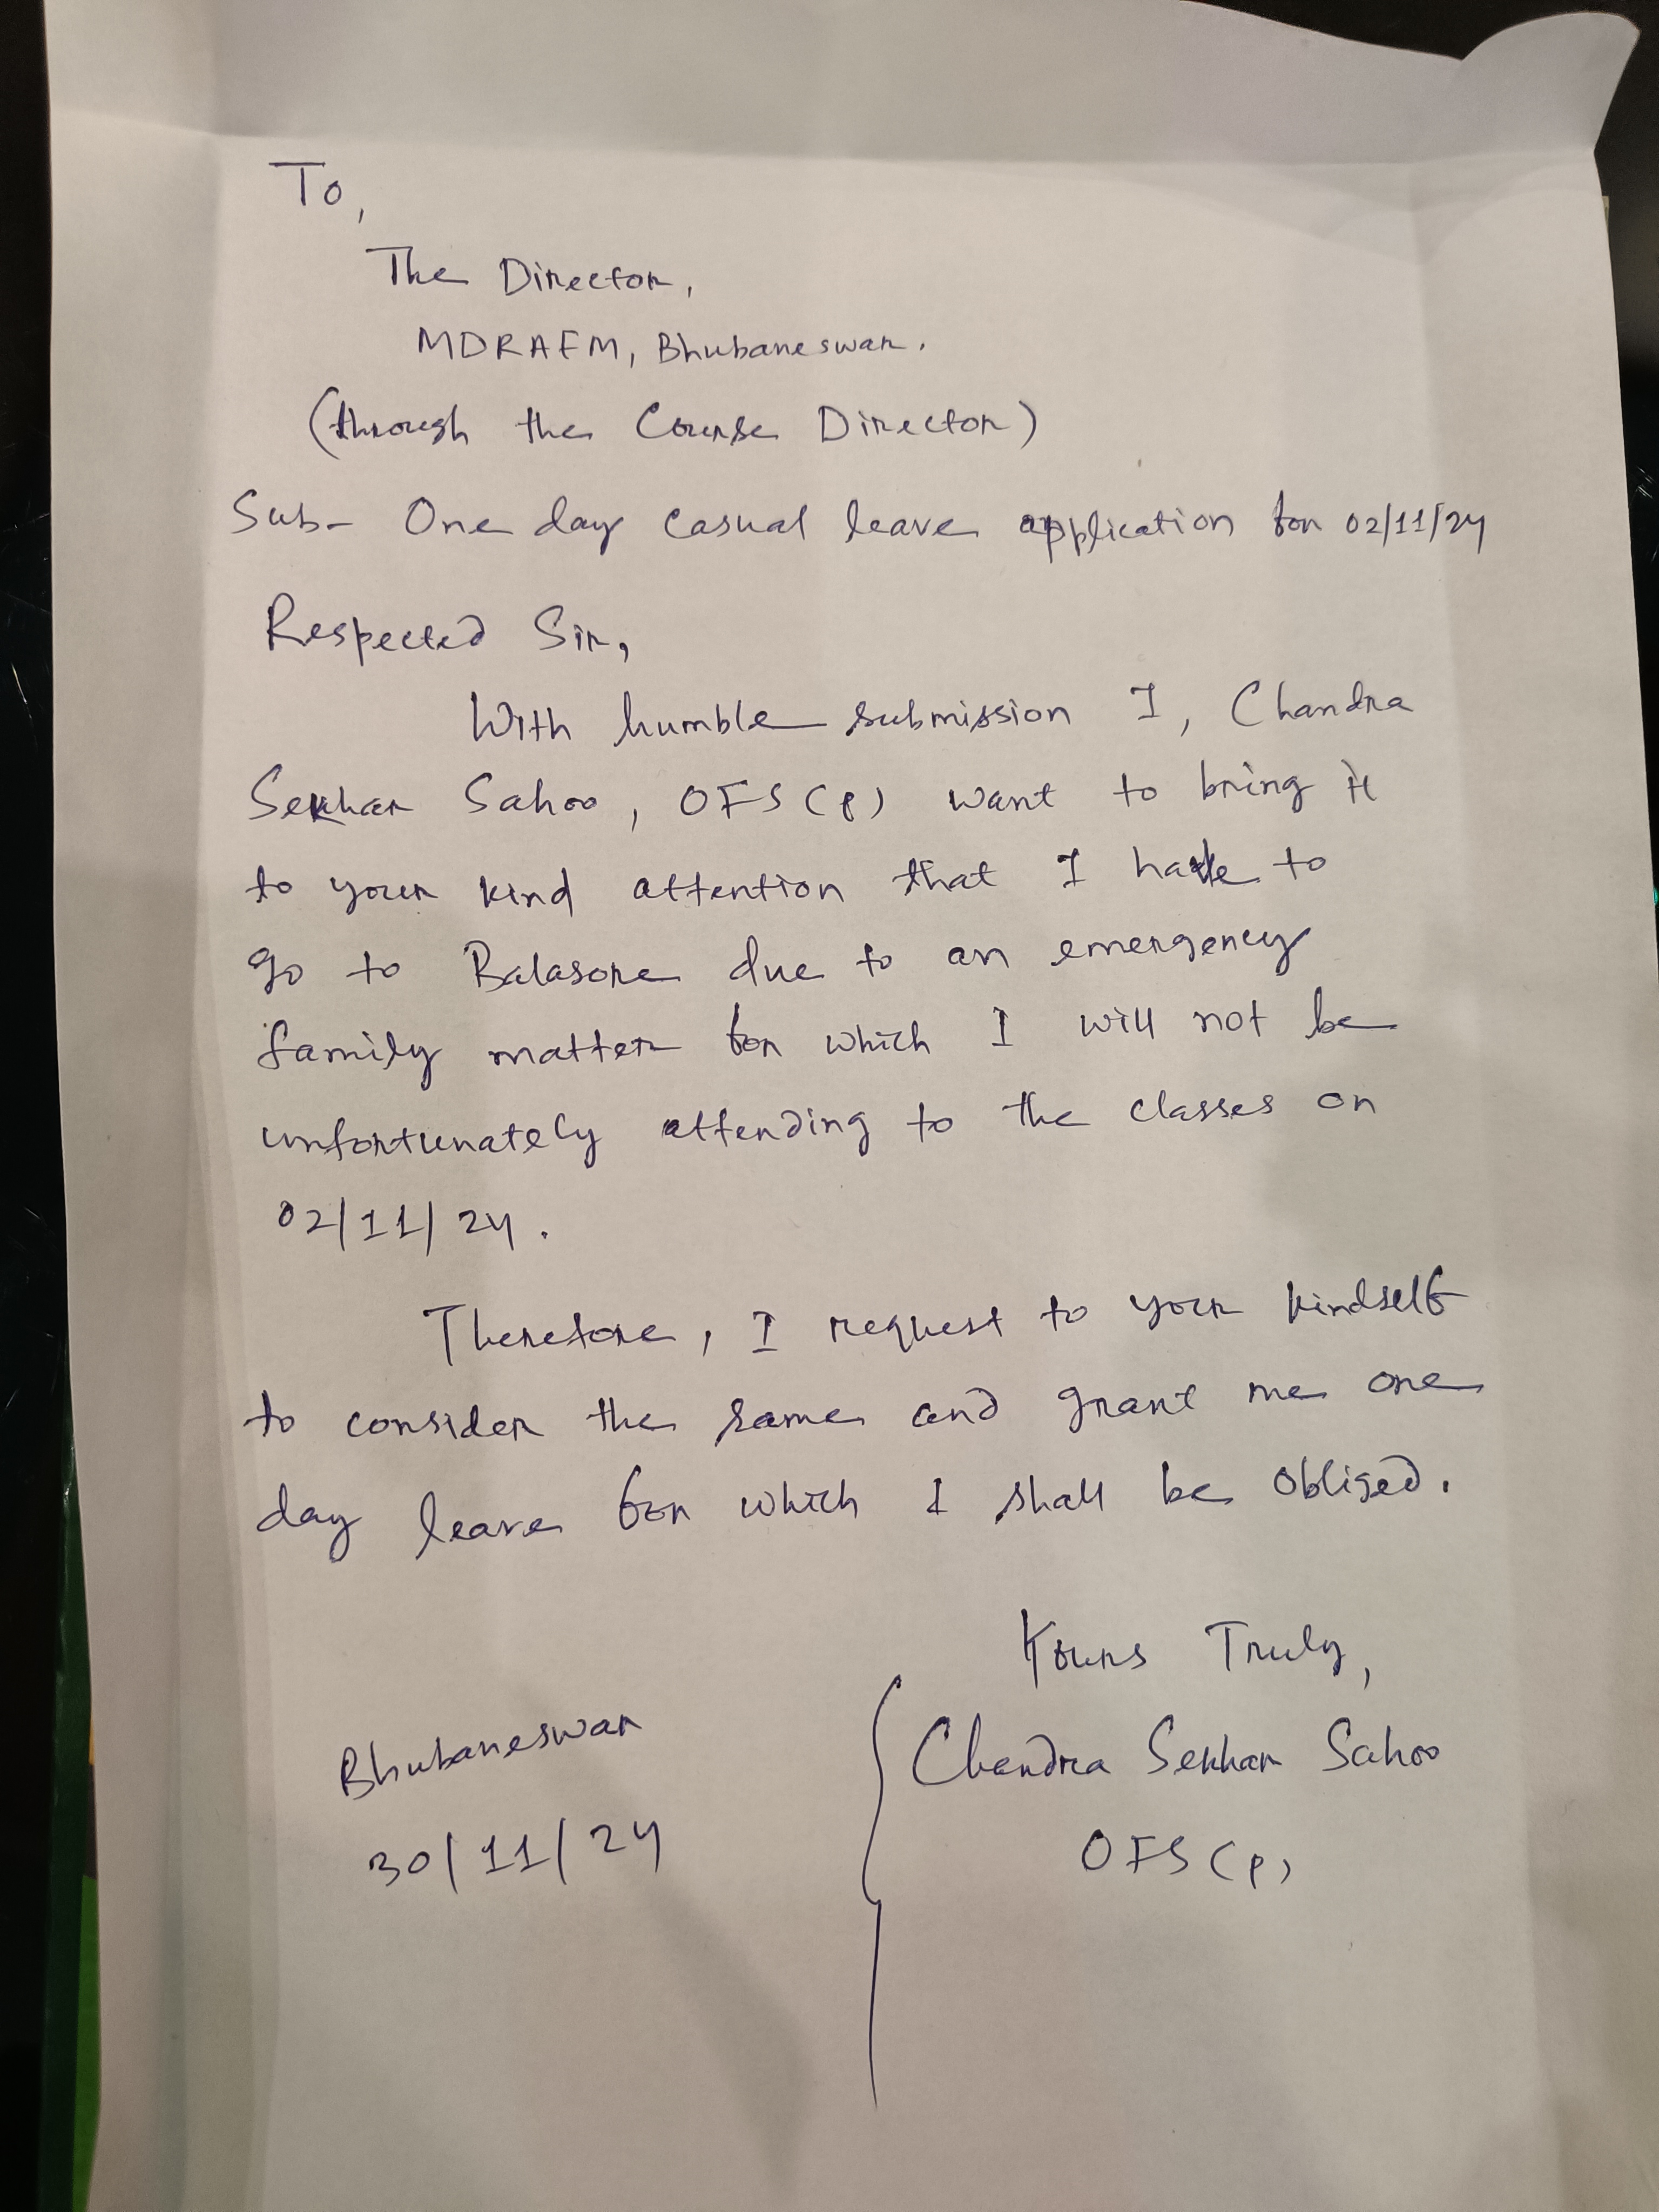 To,
The Director,
MDRAFM, Bhubaneswar.
(through the Course Director)
Sub- One day casual leave application for 02/11/24
Respected Sir,
With humble submission I, Chandra
Sekhar Sahoo, OFS(P) want to bring it
to your kind attention that I have to
go to Balasore due to an emergency
family matter for which I will not be
unfortunately attending to the classes on
02/11/24.
Therefore, I request to your kindself
to consider the same and grant me one
day leave for which I shall be obliged.
Yours Truly,
Chandra Sekhar Sahoo
OFS(P)
Bhubaneswar
30/11/24